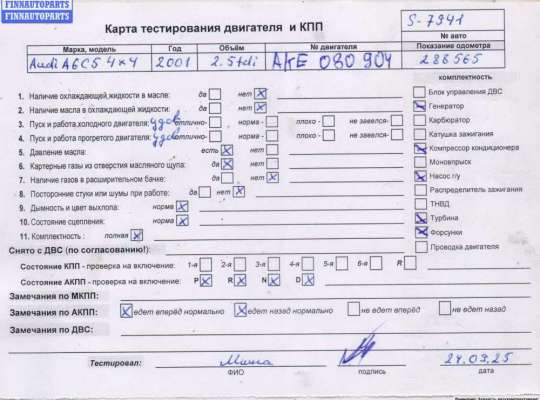 FINNAUTOPARTS
FINNAUTOPARTS
Карта тестирования двигателя и КПП
S-7941
№ авто
Audi A6C5 4x4 2001 2.5tdi AKE 080 904 286565
Марка, модель Год Объём № двигателя Показание одометра
комплектность
1. Наличие охлаждающей жидкости в масле: да нет
2. Наличие масла в охлаждающей жидкости: да нет
3. Пуск и работа, холодного двигателя: удов отлично- норма - плохо - не завелся-
4. Пуск и работа прогретого двигателя: удов отлично- норма - плохо - не завелся-
5. Давление масла: есть нет
6. Картерные газы из отверстия масляного щупа: да нет
7. Наличие газов в расширительном бачке: да нет
8. Посторонние стуки или шумы при работе: да нет
9. Дымность и цвет выхлопа: норма
10. Состояние сцепления: норма
11. Комплектность : полная
Блок управления ДВС
Генератор
Карбюратор
Катушка зажигания
Компрессор кондиционера
Моновпрыск
Насос г/у
Распределитель зажигания
ТНВД
Турбина
Форсунки
Проводка двигателя
Снято с ДВС (по согласованию!):
Состояние КПП - проверка на включение: 1-я 2-я 3-я 4-я 5-я 6-я R
Состояние АКПП - проверка на включение: P R N D
Замечания по МКПП:
Замечания по АКПП: едет вперёд нормально едет назад нормально не едет вперёд не едет назад
Замечания по ДВС:
Тестировал: Миша 24.03.25
ФИО подпись дата